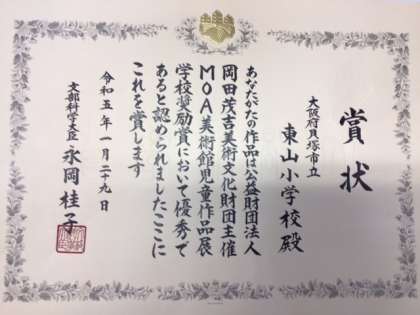 賞状
大阪府貝塚市立
東山小学校殿
あなたがたの作品は公益財団法人
岡田茂吉美術文化財団主催
MOA美術館児童作品展
学校奨励賞において優秀で
あると認められましたここに
これを賞します
令和五年一月二十九日
文部科学大臣 永岡桂子